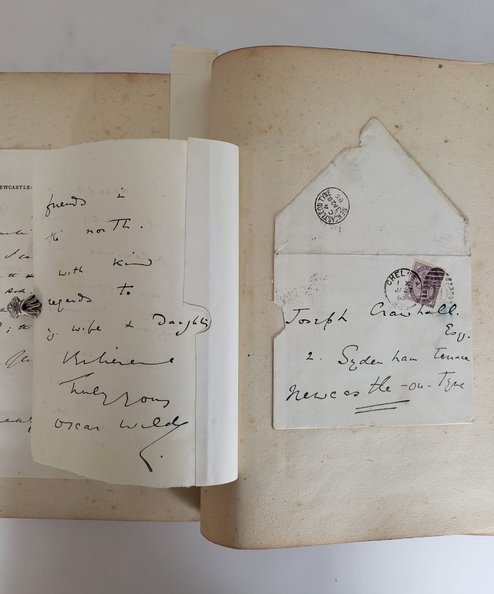 NEWCASTLE-
friends in
the north.
with kind
regards to
yr wife & Daughter
Believe me
Truly yours
Oscar Wilde
NEWCASTLE ON TYNE
CHEL
Joseph Crawhall.
Esq.
2. Sydenham Terrace
Newcastle-on-Tyne